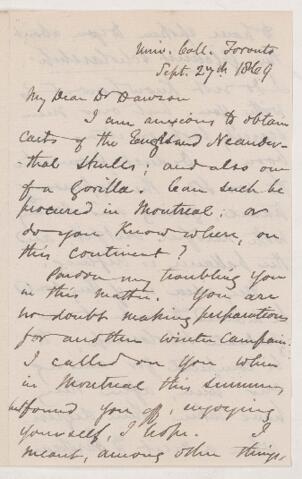 Univ. Coll. Toronto
Sept. 27th 1869
My Dear Dr Dawson
I am anxious to obtain
casts of the Engis and Neander-
thal Skulls; and also one
of a Gorilla. Can such be
procured in Montreal: or
do you know where, on
this continent?
Pardon my troubling you
in this matter. You are
no doubt making preparations
for another winter campaign.
I called on you when
in Montreal this summer,
but found you off, enjoying
yourself, I hope. I
meant, among other things,